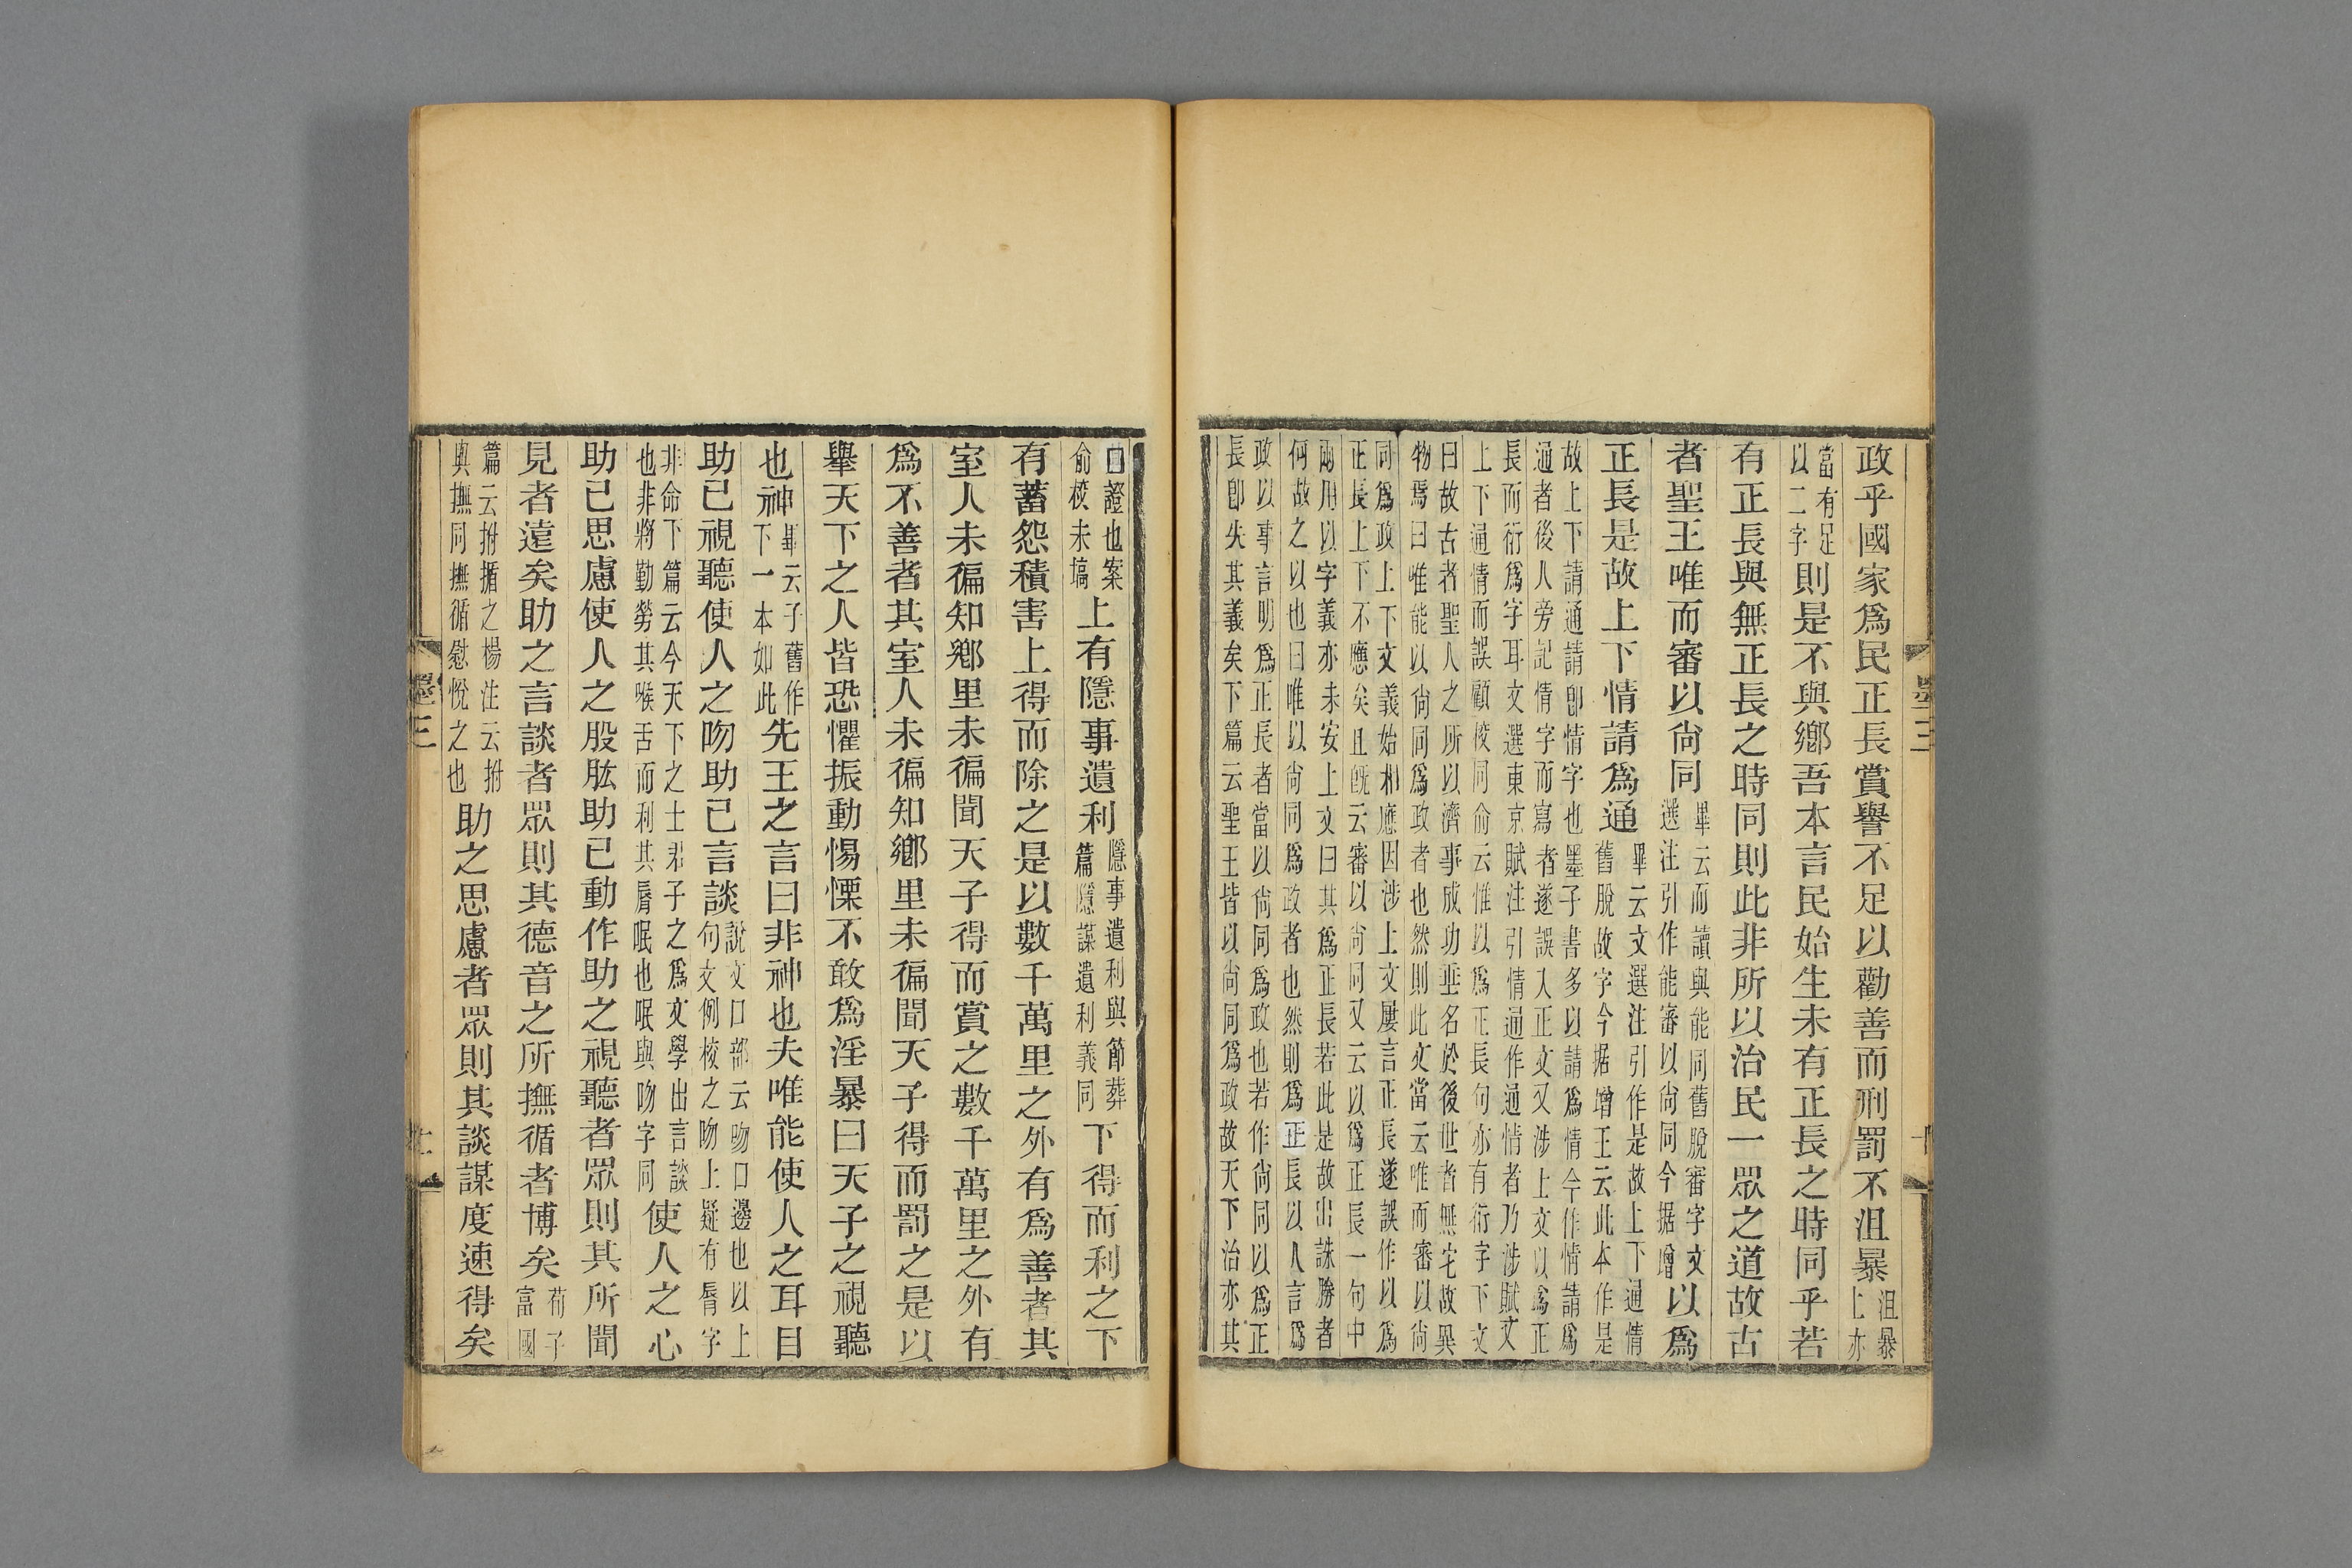 政乎國家爲民正長賞譽不足以勸善而刑罰不沮暴沮暴上亦
當有足以二字則是不與鄉吾本言民始生未有正長之時同乎若
有正長與無正長之時同則此非所以治民一眾之道故古
者聖王唯而審以尚同畢云而讀與能同舊脫審字文選注引作能審以尚同今据增以爲
正長是故上下情請爲通畢云文選注引作是故上下通情舊脫故字今据增王云此本作是
故上下請通請卽情字也墨子書多以請爲情今作情請爲
通者後人旁記情字而寫者遂誤入正文又涉上文以爲正
長而衍爲字耳文選東京賦注引情通作通情者乃涉賦文
上下通情而誤顧校同俞云惟以爲正長句亦有衍字下文
曰故古者聖人之所以濟事成功垂名於後世者無它故異
物焉曰唯能以尚同爲政者也然則此文當云唯而審以尚
同爲政上下文義始相應因涉上文屢言正長遂誤作以爲
正長上下不應矣且旣云審以尚同又云以爲正長一句中
兩用以字義亦未安上文曰其爲正長若此是故出誅勝者
何故之以也曰唯以尚同爲政者也然則爲正長以人言爲
政以事言明爲正長者當以尚同爲政也若作尚同以爲正
長卽失其義矣下篇云聖王皆以尚同爲政故天下治亦其
墨三
曰證也案俞校未塙上有隱事遺利隱事遺利與節葬篇隱謀遺利義同下得而利之下
有蓄怨積害上得而除之是以數千萬里之外有爲善者其
室人未徧知鄉里未徧聞天子得而賞之數千萬里之外有
爲不善者其室人未徧知鄉里未徧聞天子得而罰之是以
舉天下之人皆恐懼振動惕慄不敢爲淫暴曰天子之視聽
也神畢云子舊作下一本如此先王之言曰非神也夫唯能使人之耳目
助己視聽使人之吻助己言談說文口部云吻口邊也以上句文例校之吻上疑有脣字
非命下篇云今天下之士君子之爲文學出言談也非將勤勞其喉舌而利其脣呡也呡與吻字同使人之心
助己思慮使人之股肱助己動作助之視聽者眾則其所聞
見者遠矣助之言談者眾則其德音之所撫循者博矣荀子富國
篇云拊循之楊注云拊與撫同撫循慰悅之也助之思慮者眾則其談謀度速得矣
墨三